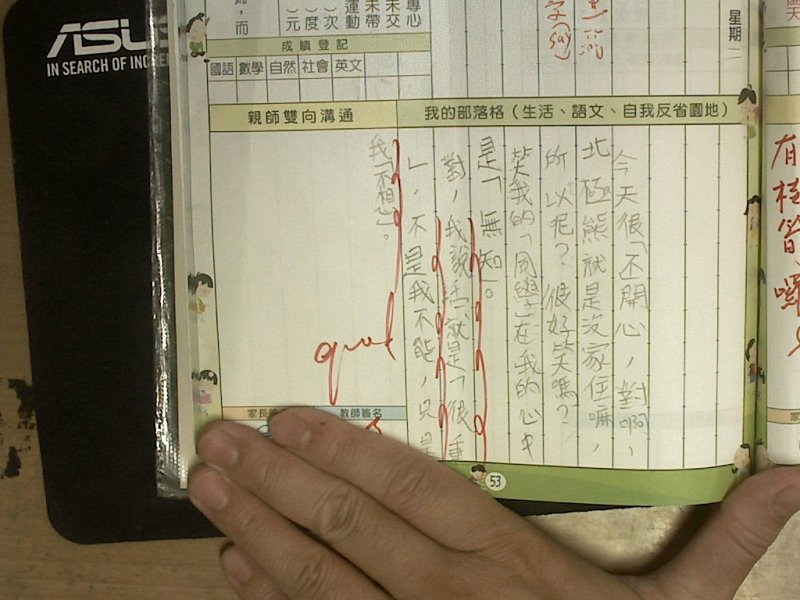 ASUS
IN SEARCH OF INCRE
星期一
專心
未交
未帶
運動
次
度
元
成績登記
國語 數學 自然 社會 英文
親師雙向溝通
我的部落格（生活、語文、自我反省園地）
今天很「不開心」，對啊，
北極熊就是沒家住嘛，
所以呢？很好笑嗎？
笑我的「同學」在我的心中
是「無知」。
對，我說話就是「很重
」，不是我不能，只是
我「不想」。
good
教師簽名
53
有